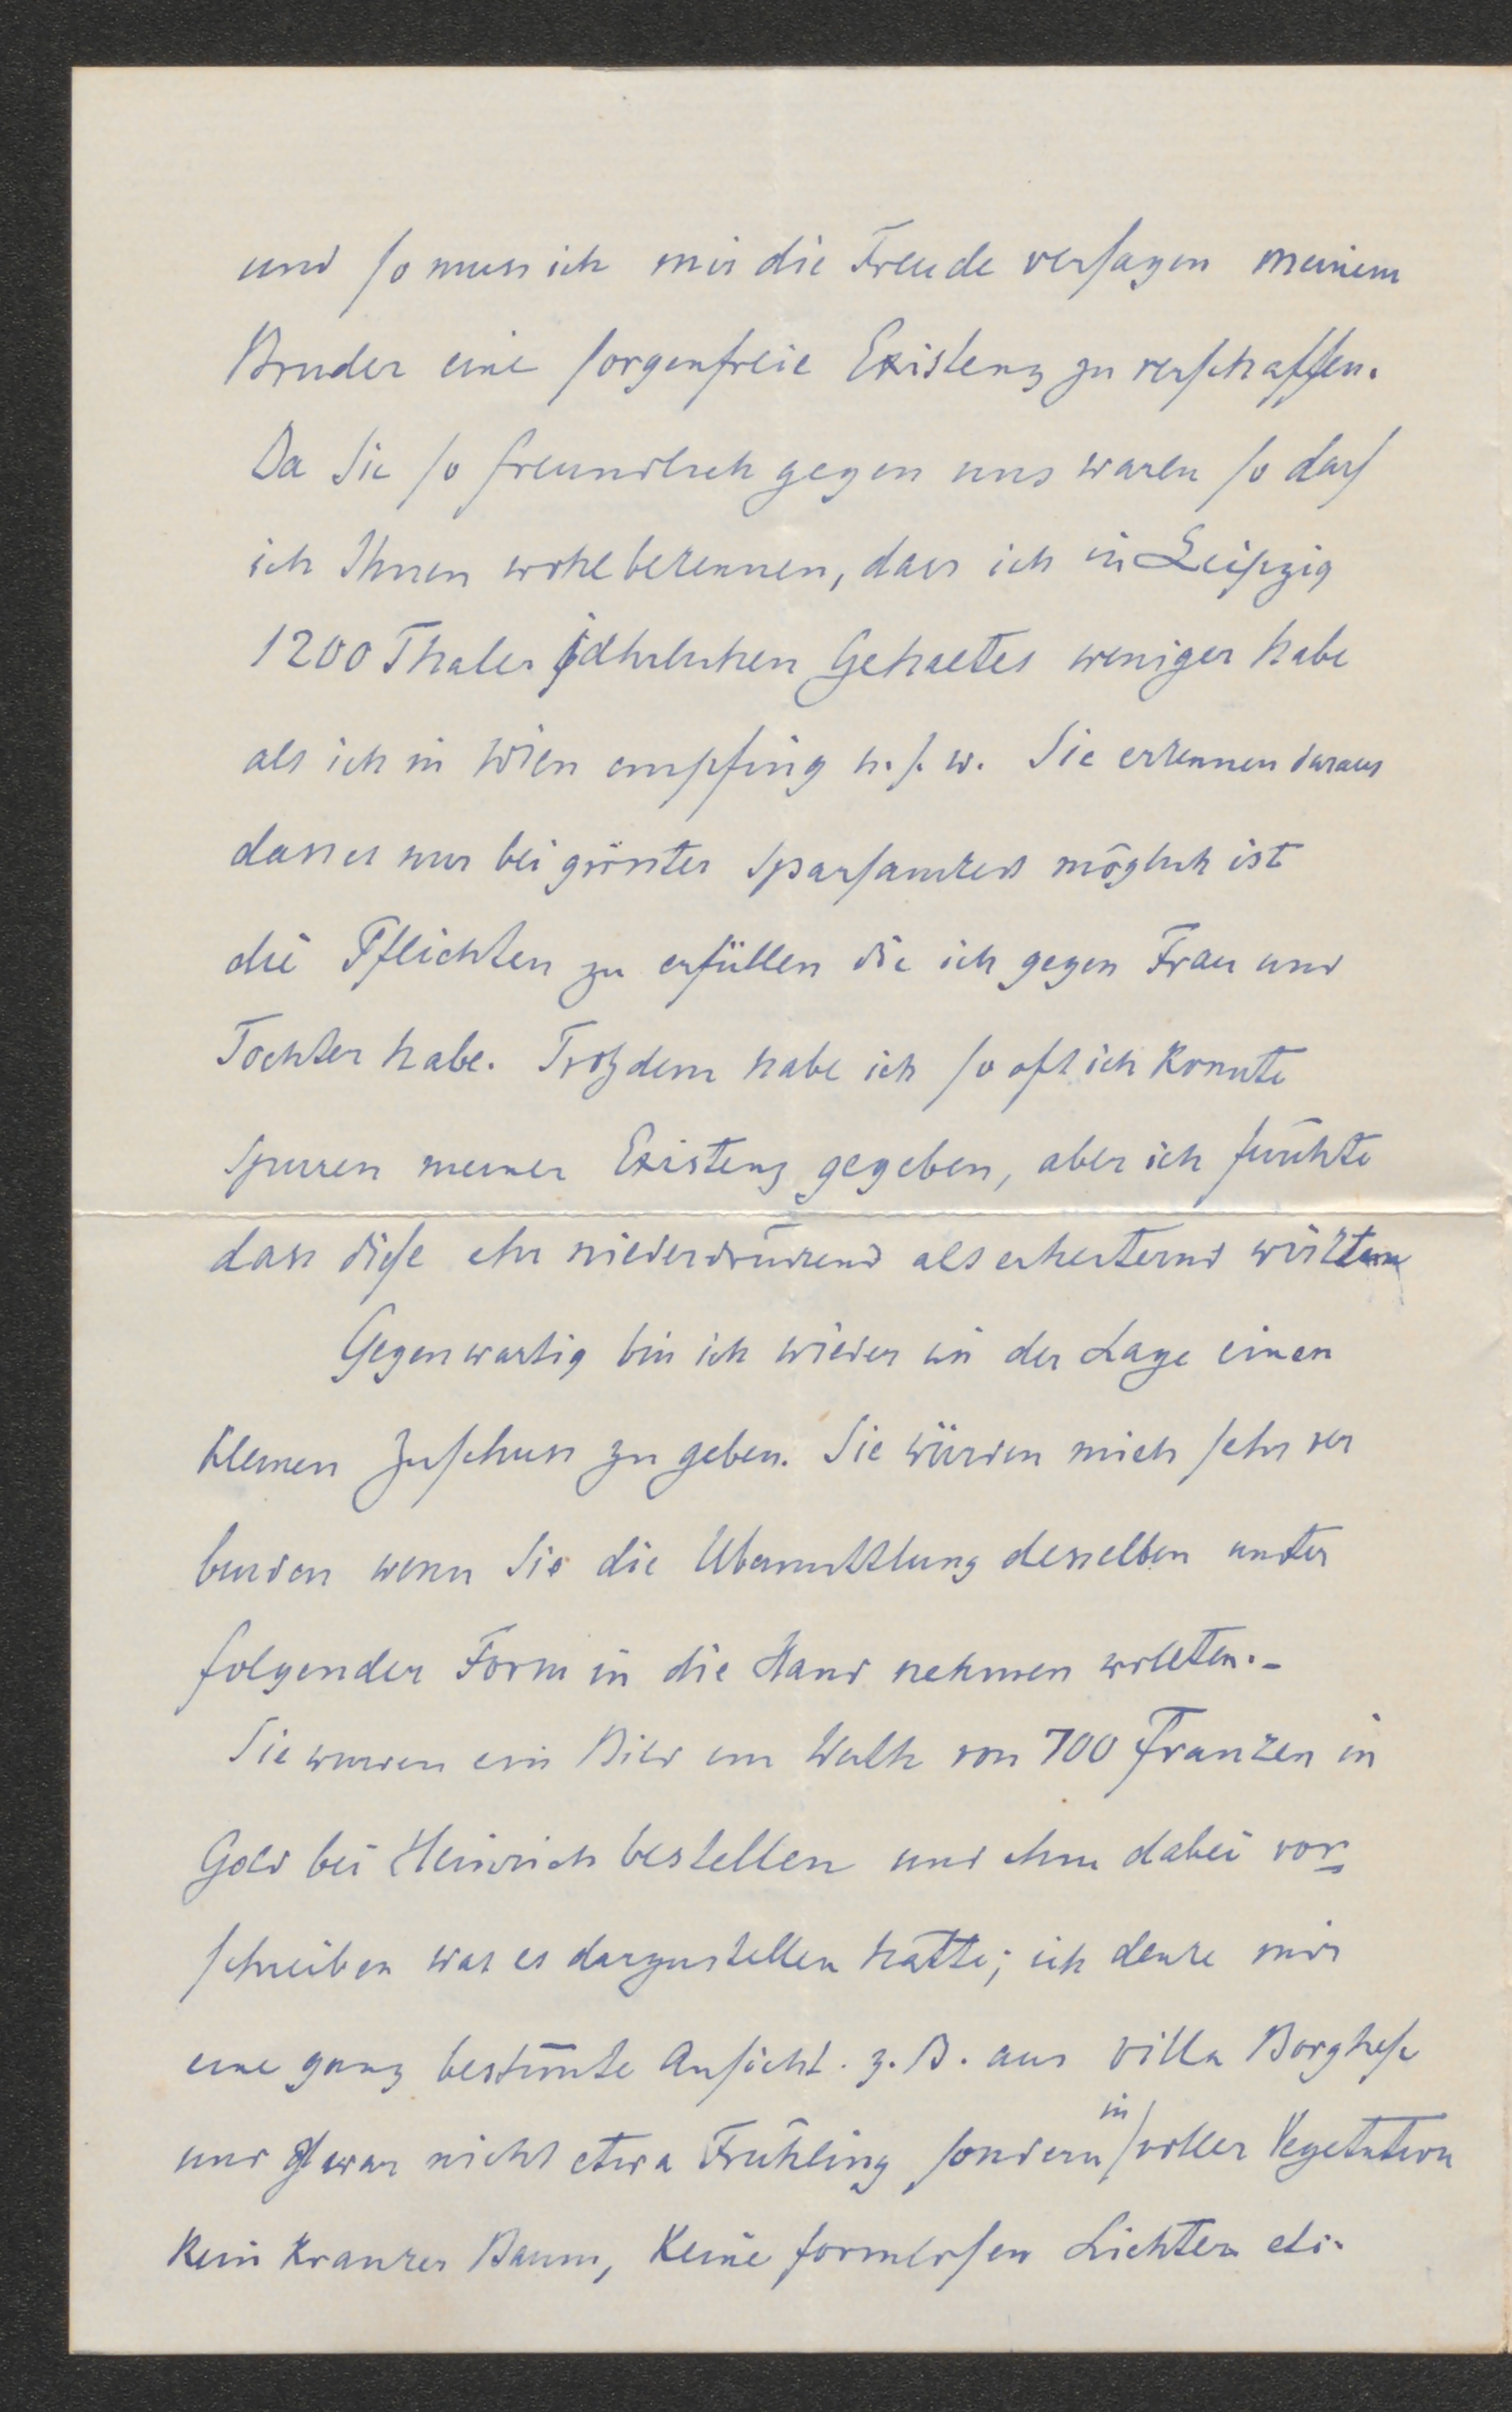 und so muss ich mir die Freude versagen meinem
Bruder eine sorgenfreie Existenz zu verschaffen.
Da Sie so freundlich gegen uns waren so darf
ich Ihnen wohl bekennen, dass ich in Leipzig
1200 Thaler jährlichen Gehaltes weniger habe
als ich in Wien empfing u. s. w. Sie erkennen daraus
dass es nur bei grösster Sparsamkeit möglich ist
die Pflichten zu erfüllen die ich gegen Frau und
Tochter habe. Trotzdem habe ich so oft ich konnte
Spuren meiner Existenz gegeben, aber ich fürchte
dass diese eher niederdrückend als erheiternd wirkten
Gegenwartig bin ich wieder in der Lage einen
kleinen Zuschuss zu geben. Sie würden mich sehr ver
binden wenn Sie die Ubermittlung desselben unter
folgender Form in die Hand nehmen wollten.-
Sie wurden ein Bild im Werth von 700 Franken in
Gold bei Heinrich bestellen und ihm dabei vor=
schreiben was es darzustellen hatte; ich denke mir
eine ganz bestim̄te Ansicht. z. B. aus Villa Borghese
und zwar nicht etwa Frühling sondern in voller Vegetation
kein kranker Baum, keine formlosen Lichter etc.